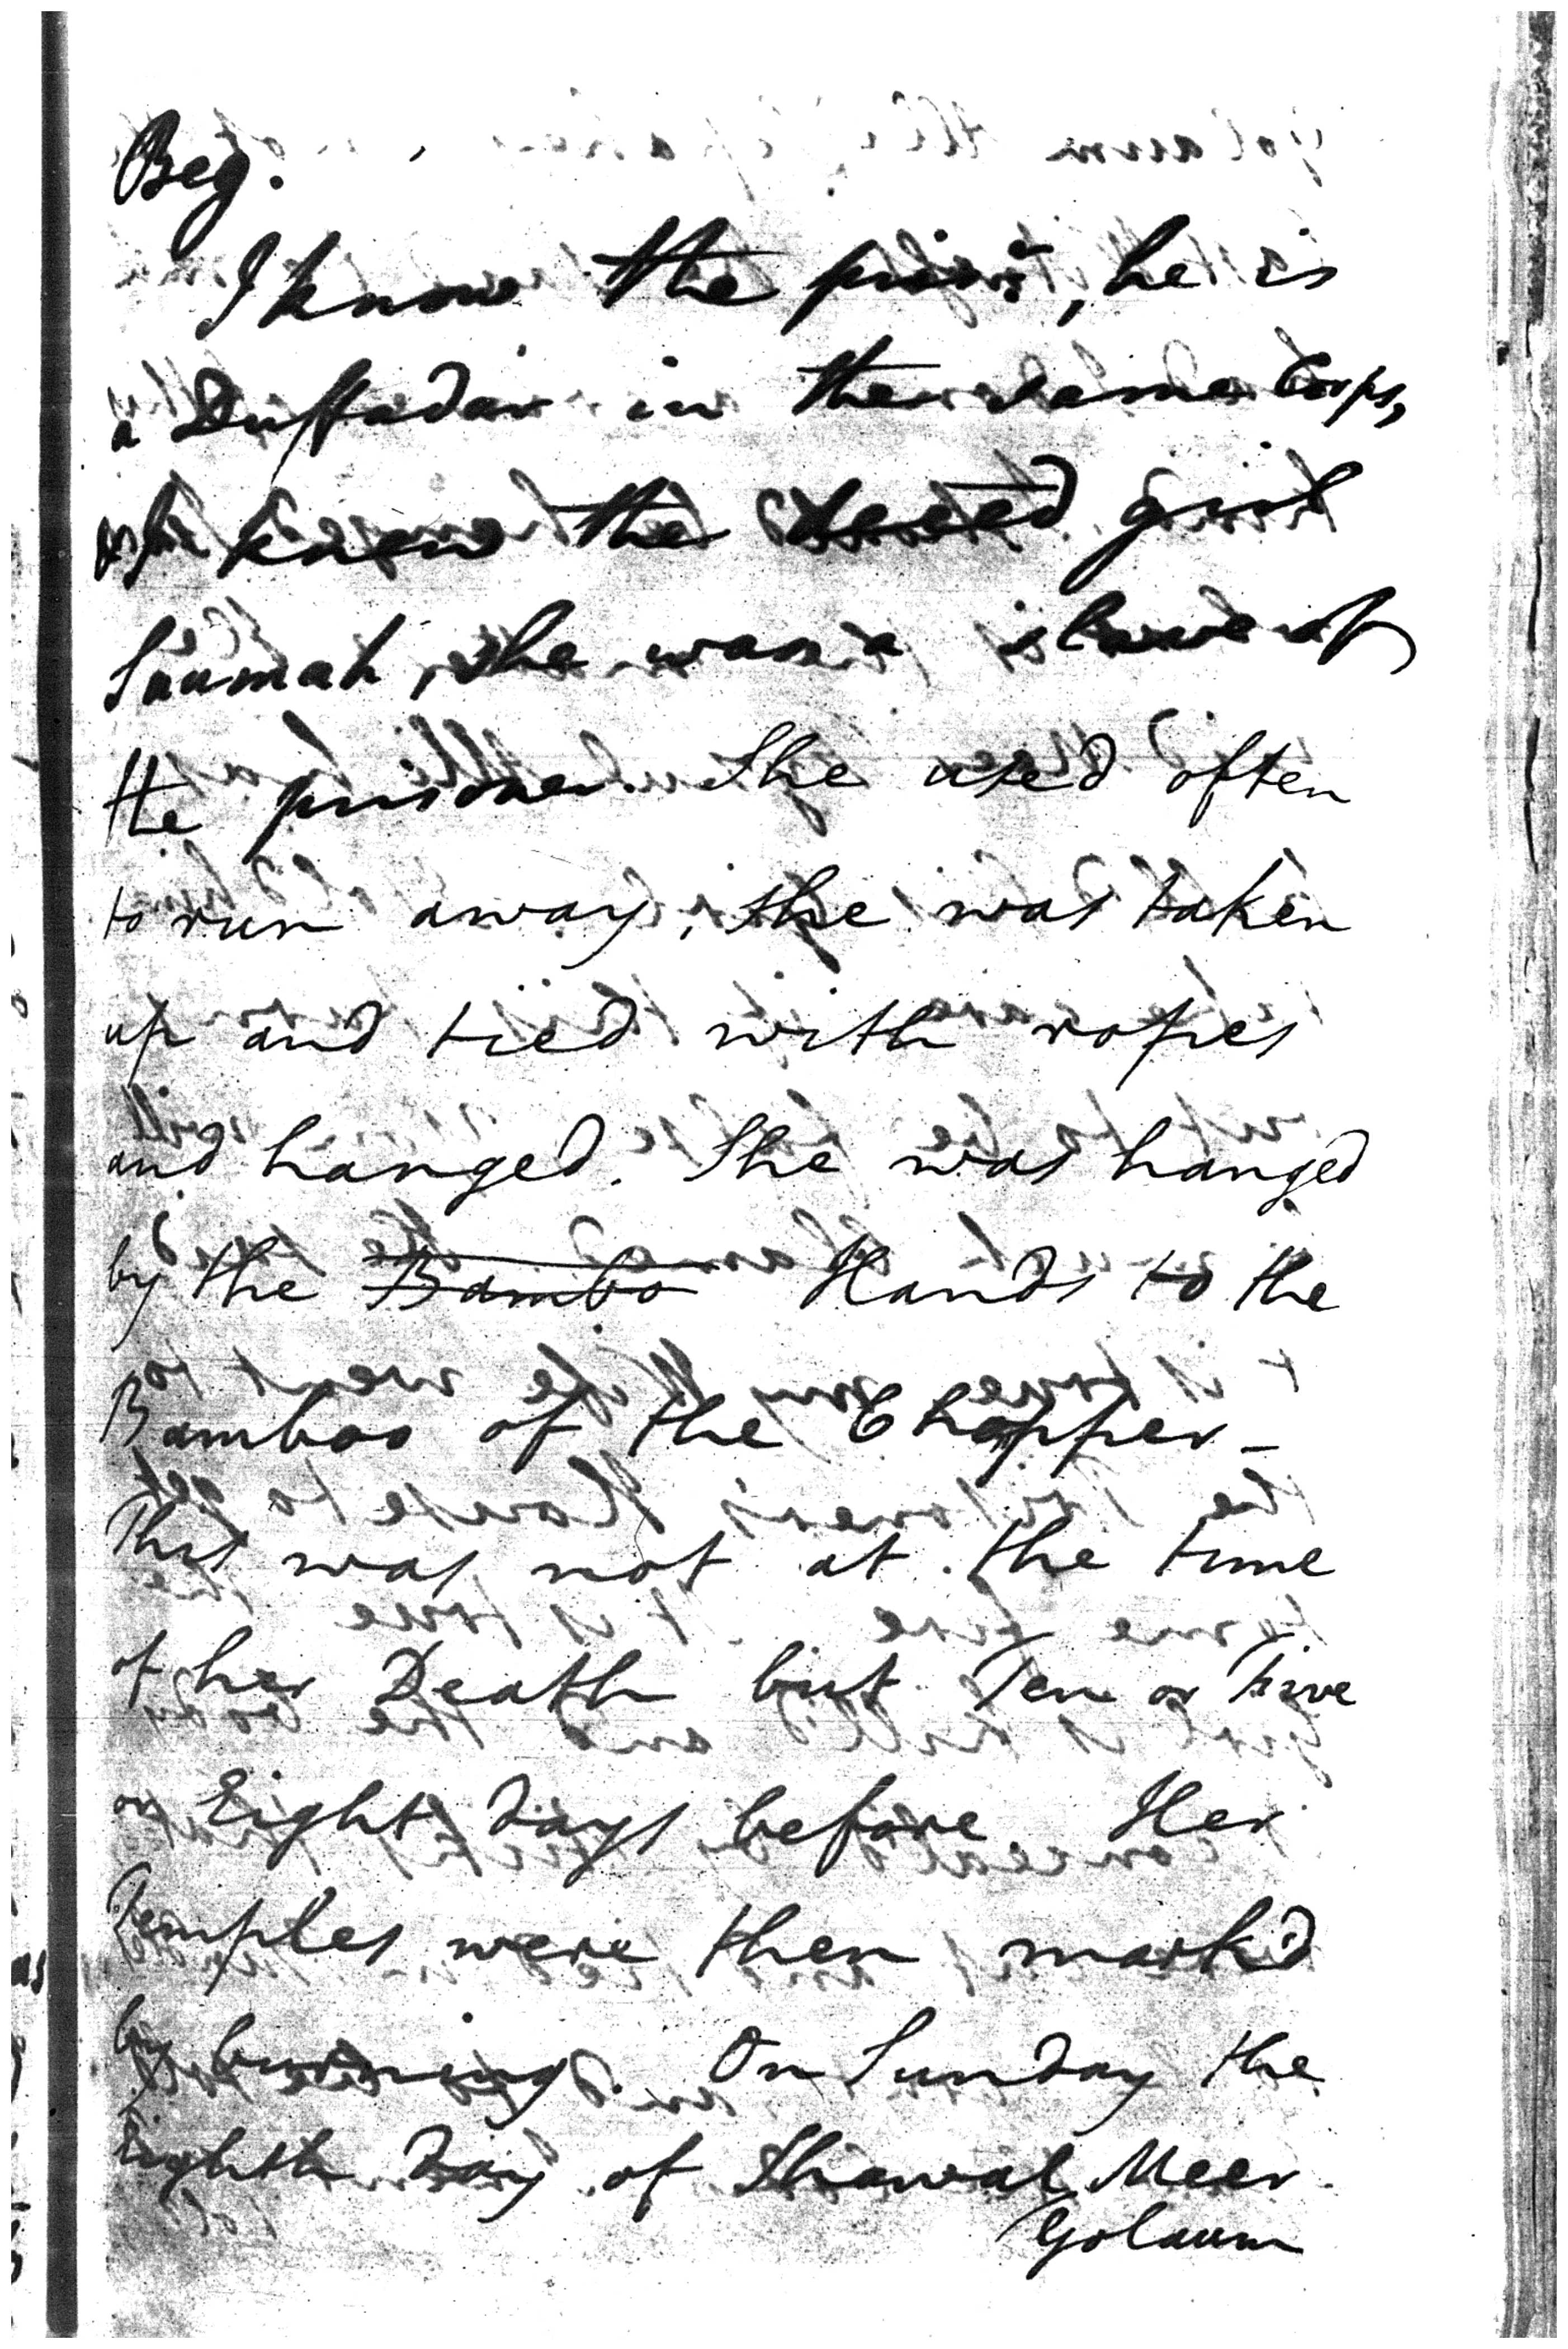 Beg.
I know the prisr, he is
a Duffadar in the same Corps,
& I knew the deceed girl
Suumah, she was a slave of
the prisoner. She used often
to run away, she was taken
up and tied with ropes
and hanged. She was hanged
by the Bambo Hands to the
Bamboo of the Chopper_
This was not at the time
of her Death but Ten or Five
or Eight days before. Her
Temples were then mark'd
by burning. On Sunday the
Eighth day of Shawal Meer
Golaum